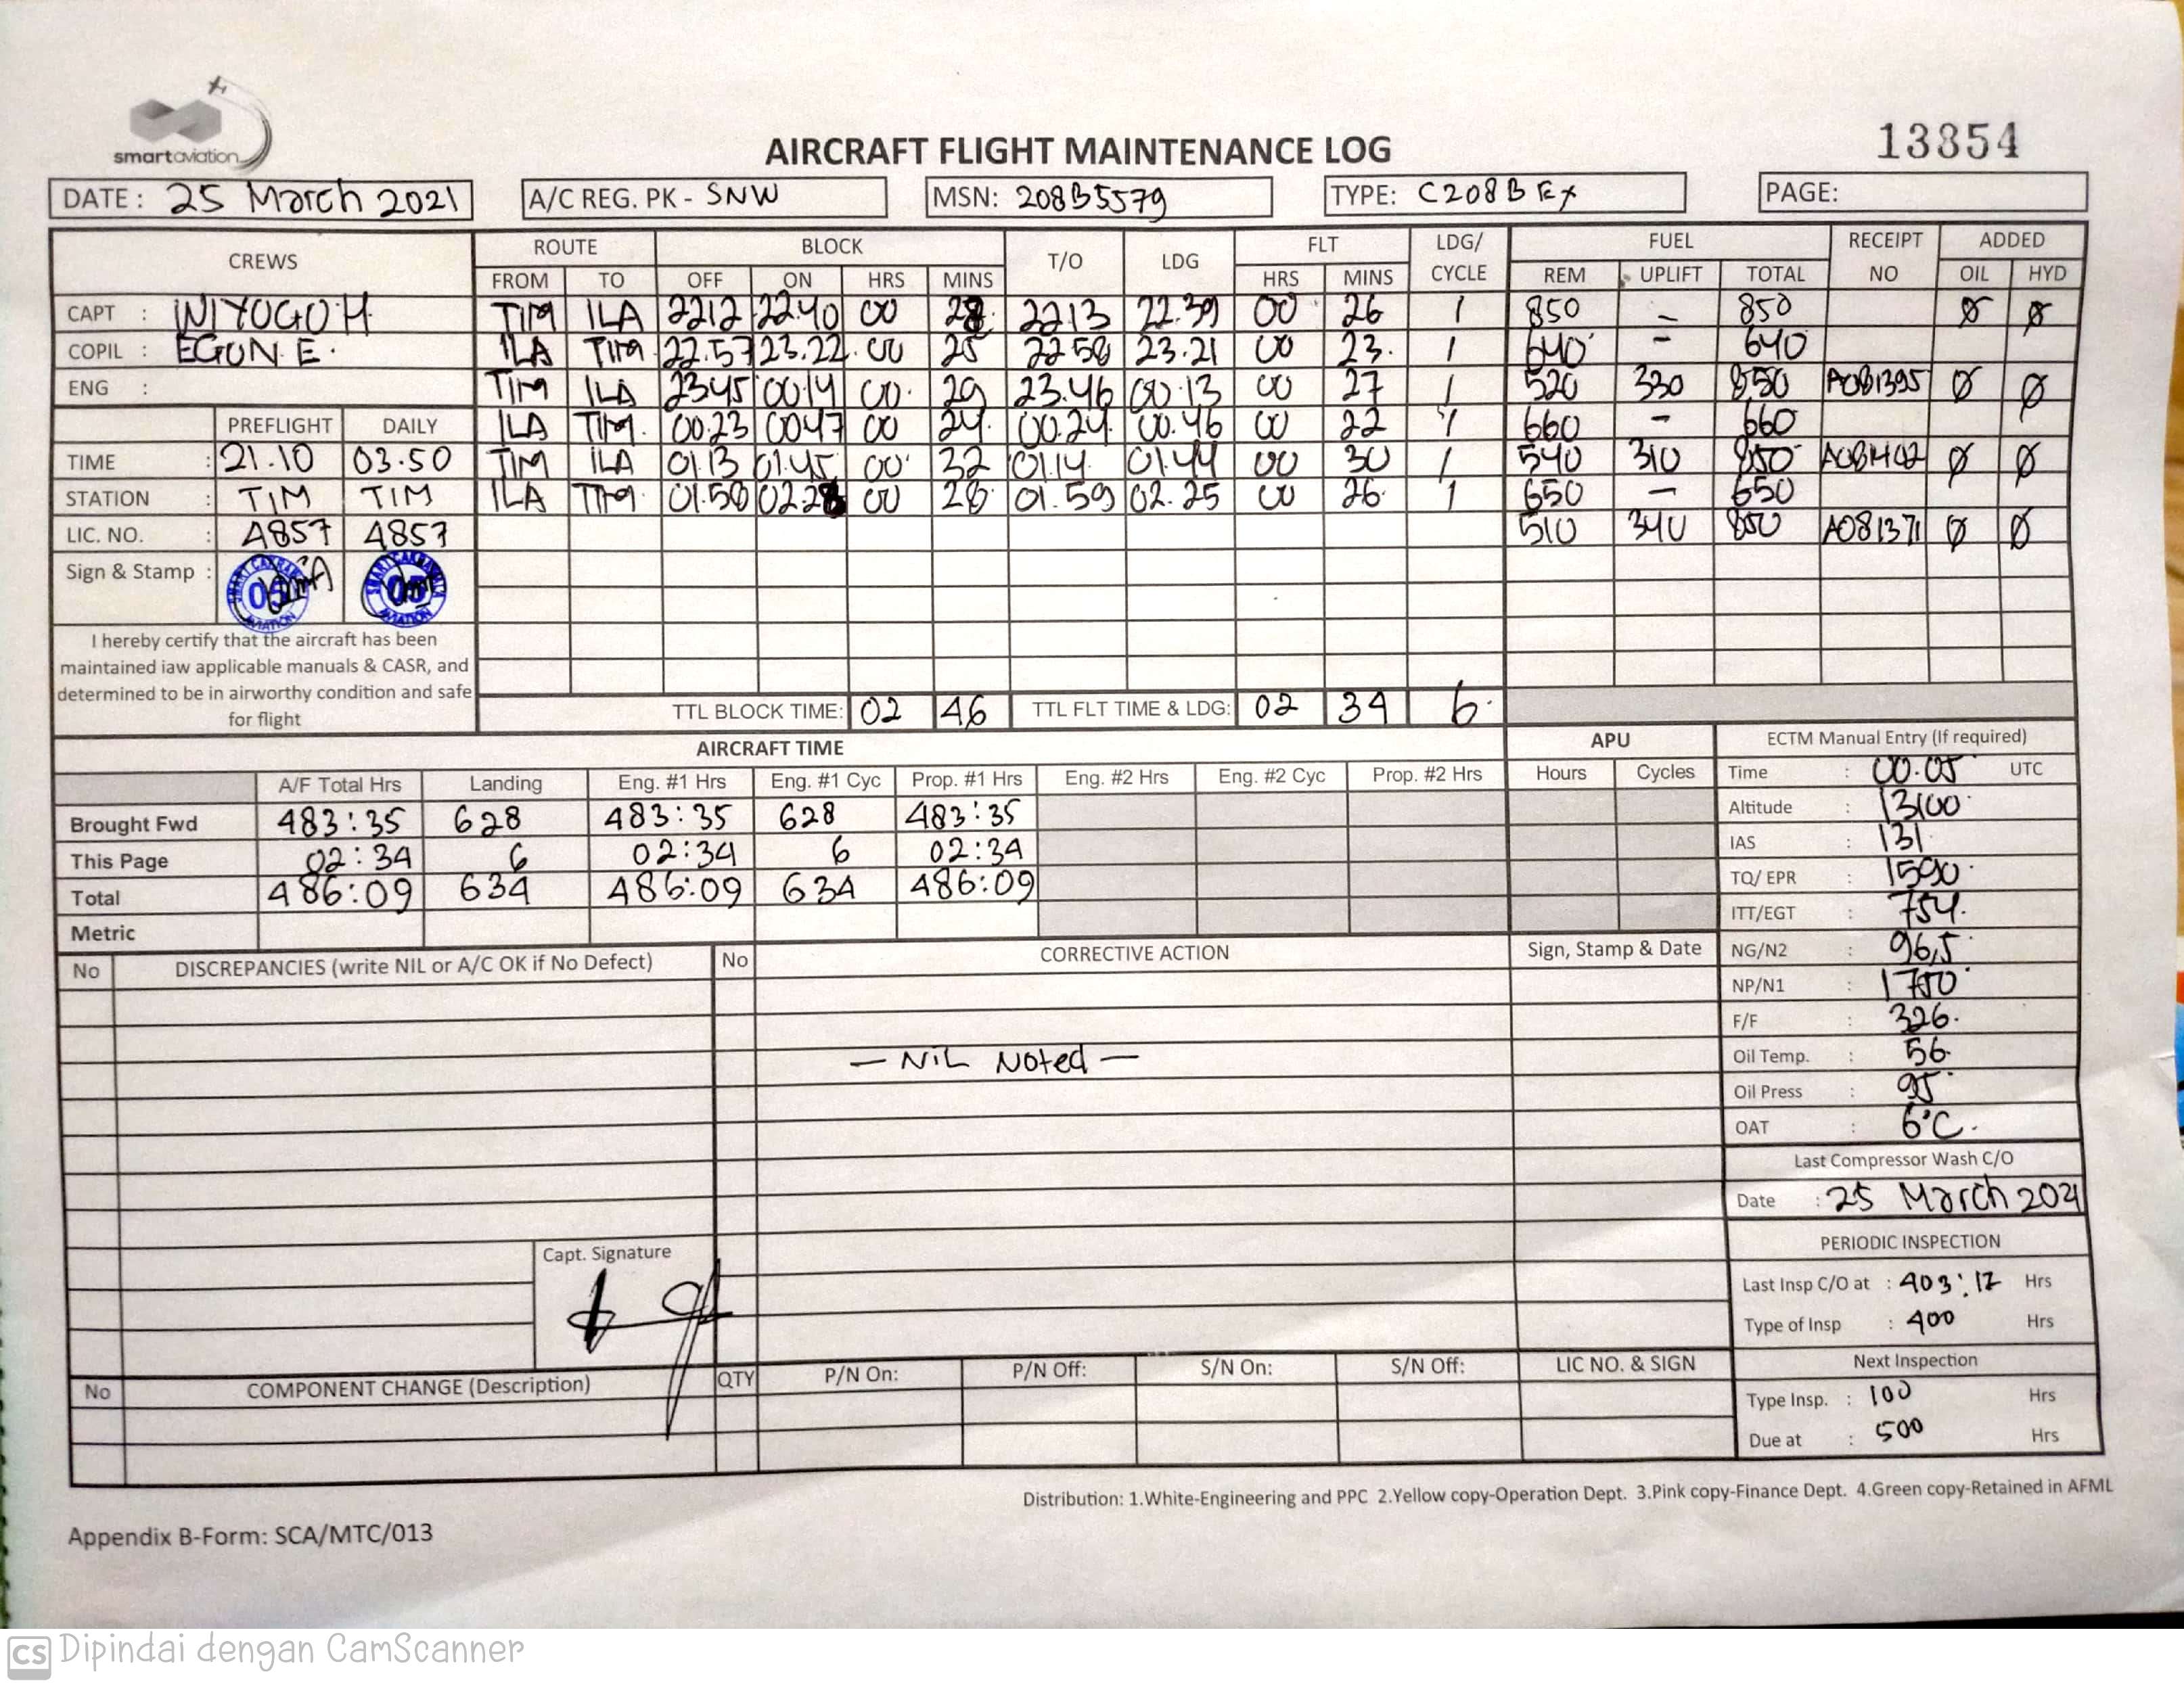 smart aviation
AIRCRAFT FLIGHT MAINTENANCE LOG
13854
DATE : 25 March 2021 A/C REG. PK - SNW MSN: 208B5579 TYPE: C208B EX PAGE:
CREWS ROUTE BLOCK T/O LDG FLT LDG/ CYCLE FUEL RECEIPT NO ADDED
FROM TO OFF ON HRS MINS HRS MINS REM UPLIFT TOTAL OIL HYD
CAPT : WIYOGO H TIM ILA 2212 22.40 00 28 2213 22.39 00 26 1 850 - 850 Ø Ø
COPIL : EGUN E. ILA TIM 22.57 23.22 00 25 22 58 23.21 00 23 1 640 - 640
ENG : TIM ILA 2345 0014 00 29 23.46 00.13 00 27 1 520 330 850 A081395 Ø Ø
PREFLIGHT DAILY ILA TIM 00.23 0047 00 24 00.24 00.46 00 22 1 660 - 660
TIME : 21.10 03.50 TIM ILA 01.13 01.45 00 32 01.14 01.44 00 30 1 540 310 850 A081402 Ø Ø
STATION : TIM TIM ILA TIM 01.58 00 28 01.59 02.25 00 26 1 650 - 650
LIC. NO. : 4857 4857 510 340 850 A081371 Ø Ø
Sign & Stamp :
AVIATION AVIATION
I hereby certify that the aircraft has been
maintained iaw applicable manuals & CASR, and
determined to be in airworthy condition and safe
for flight
TTL BLOCK TIME: 02 46 TTL FLT TIME & LDG: 02 34 6
AIRCRAFT TIME APU ECTM Manual Entry (If required)
A/F Total Hrs Landing Eng. #1 Hrs Eng. #1 Cyc Prop. #1 Hrs Eng. #2 Hrs Eng. #2 Cyc Prop. #2 Hrs Hours Cycles Time : 00.05 UTC
Brought Fwd 483:35 628 483:35 628 483:35 Altitude : 13100
This Page 02:34 6 02:34 6 02:34 IAS : 131
Total 486:09 634 486:09 634 486:09 TQ/ EPR : 1590
Metric ITT/EGT : 754
No DISCREPANCIES (write NIL or A/C OK if No Defect) No CORRECTIVE ACTION Sign, Stamp & Date NG/N2 : 96,5
NP/N1 : 1750
F/F : 326
— NIL Noted — Oil Temp. : 56
Oil Press : 95
OAT : 6°C
Last Compressor Wash C/O
Date : 25 March 2021
Capt. Signature PERIODIC INSPECTION
Last Insp C/O at : 403:12 Hrs
Type of Insp : 400 Hrs
No COMPONENT CHANGE (Description) QTY P/N On: P/N Off: S/N On: S/N Off: LIC NO. & SIGN Next Inspection
Type Insp. : 100 Hrs
Due at : 500 Hrs
Distribution: 1.White-Engineering and PPC 2.Yellow copy-Operation Dept. 3.Pink copy-Finance Dept. 4.Green copy-Retained in AFML
Appendix B-Form: SCA/MTC/013
CS Dipindai dengan CamScanner